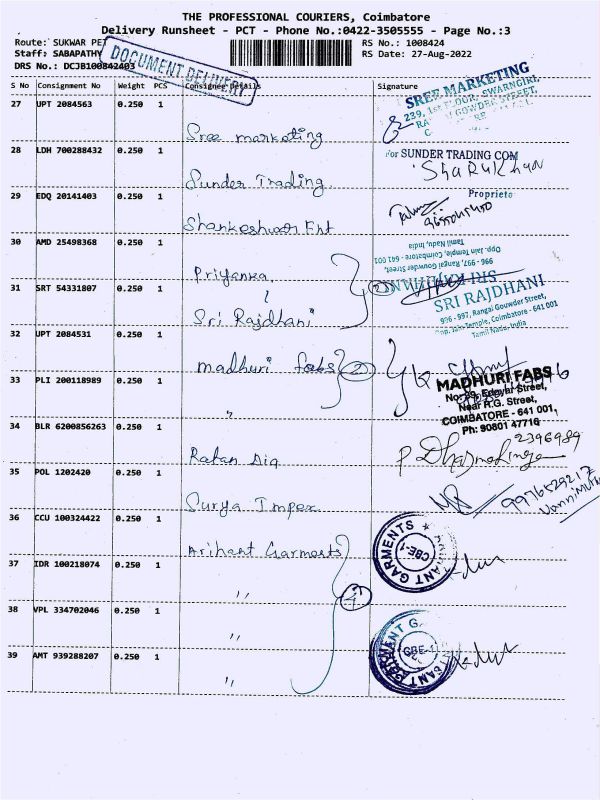 THE PROFESSIONAL COURIERS, Coimbatore
Delivery Runsheet - PCT - Phone No.:0422-3505555 - Page No.:3
Route: SUKWAR PET
RS No.: 1008424
Staff: SABAPATHY
RS Date: 27-Aug-2022
DRS No.: DCJB100842403
DOCUMENT DELIVERY
S No Consignment No Weight PCS Consignee Details Signature
27 UPT 2084563 0.250 1
Sree marketing
SREE MARKETING
239, 1st FLOOR, SWARNGIRI,
GOWDER STREET,
28 LDH 700288432 0.250 1
Sunder Trading
For SUNDER TRADING COM
Sharukhan
Proprieto
29 EDQ 20141403 0.250 1
Shankeshwar Ent
30 AMD 25498368 0.250 1
Priyanka
996 - 997, Rangai Gounder Street,
Opp. Jain Temple, Coimbatore - 641 001
Tamil Nadu, India
31 SRT 54331807 0.250 1
Sri Rajdhani
SRI RAJDHANI
996 - 997, Rangai Gouwder Street,
Opp. Jain Temple, Coimbatore - 641 001
Tamil Nadu, India
32 UPT 2084531 0.250 1
madhuri fabs 2
33 PLI 200118989 0.250 1
"
MADHURI FABS
No: 39, Edayar Street,
Near R.G. Street,
COIMBATORE - 641 001,
Ph: 90801 47716
34 BLR 6200856263 0.250 1
Ratan Dia
P Dharmalingam
2396989
35 POL 1202420 0.250 1
Surya Impex
9976529217
36 CCU 100324422 0.250 1
Arihant Garments
ARIHANT GARMENTS
CBE-1
37 IDR 100218074 0.250 1
"
4
38 VPL 334702046 0.250 1
"
CBE-1
39 AMT 939288207 0.250 1
"